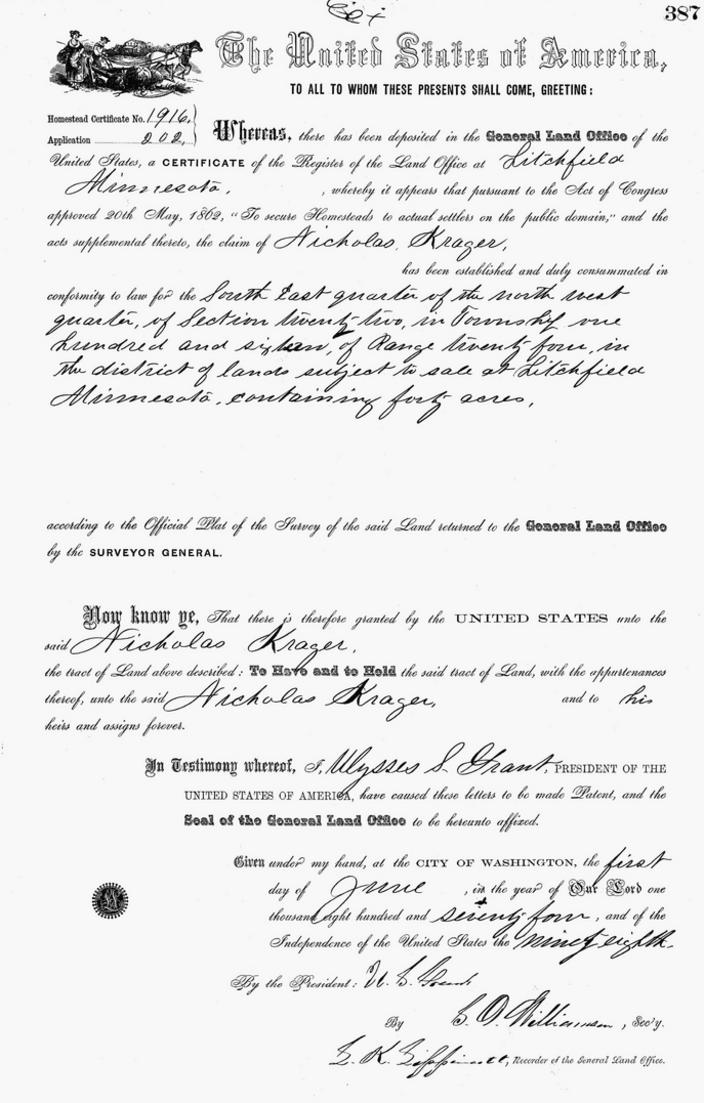 387
The United States of America,
TO ALL TO WHOM THESE PRESENTS SHALL COME, GREETING:
Homestead Certificate No. 1916.
Application 202.
Whereas, there has been deposited in the General Land Office of the
United States, a CERTIFICATE of the Register of the Land Office at Litchfield
Minnesota, , whereby it appears that pursuant to the Act of Congress
approved 20th May, 1862, "To secure Homesteads to actual settlers on the public domain," and the
acts supplemental thereto, the claim of Nicholas Krager,
has been established and duly consummated in
conformity to law for the South East quarter of the north west
quarter, of Section twenty two, in Township one
hundred and sixteen, of Range twenty four, in
the district of lands subject to sale at Litchfield
Minnesota, containing forty acres,
according to the Official Plat of the Survey of the said Land returned to the General Land Office
by the SURVEYOR GENERAL.
Now know ye, That there is therefore granted by the UNITED STATES unto the
said Nicholas Krager,
the tract of Land above described: To Have and to Hold the said tract of Land, with the appurtenances
thereof, unto the said Nicholas Krager, and to his
heirs and assigns forever.
In Testimony whereof, I, Ulysses S. Grant, PRESIDENT OF THE
UNITED STATES OF AMERICA, have caused these letters to be made Patent, and the
Seal of the General Land Office to be hereunto affixed.
Given under my hand, at the CITY OF WASHINGTON, the first
day of June , in the year of Our Lord one
thousand eight hundred and seventy four, and of the
Independence of the United States the ninety eighth.
By the President: U. S. Grant
By S. D. Williamson, Sec'y.
L. K. Lippincott, Recorder of the General Land Office.